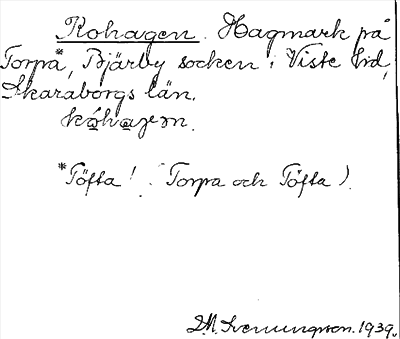 Kohagen. Hagmark på
Torpa*, Bjärby socken i Viste hd,
Skaraborgs län.
kóhaɡen.
*Töfta! (Torpa och Töfta).
D.M. Svenungsson. 1939.